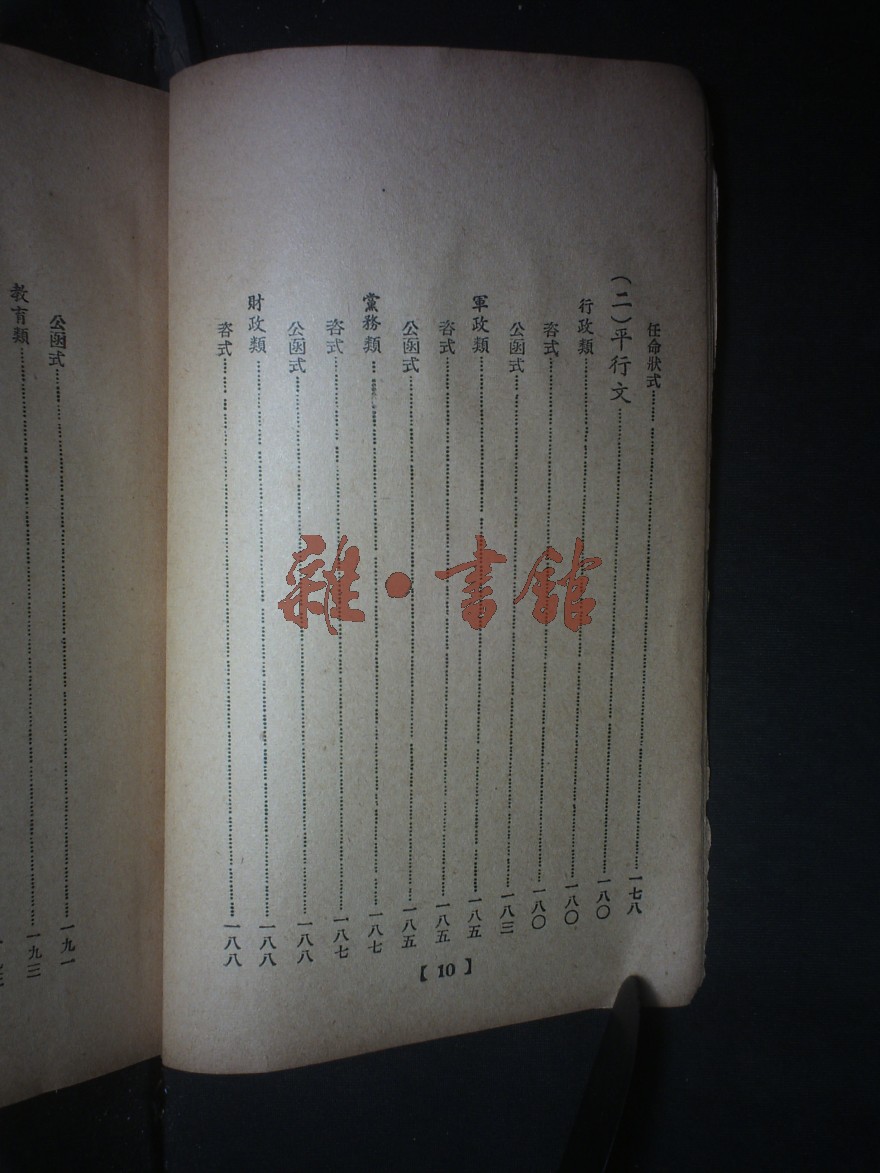 任命狀式⋯⋯一七八
(二)平行文⋯⋯一八〇
行政類⋯⋯一八〇
咨式⋯⋯一八〇
公函式⋯⋯一八三
軍政類⋯⋯一八五
咨式⋯⋯一八五
公函式⋯⋯一八五
黨務類⋯⋯一八七
咨式⋯⋯一八七
公函式⋯⋯一八八
財政類⋯⋯一八八
咨式⋯⋯一八八
【10】
公函式⋯⋯一九一
教育類⋯⋯一九三
雜·書館